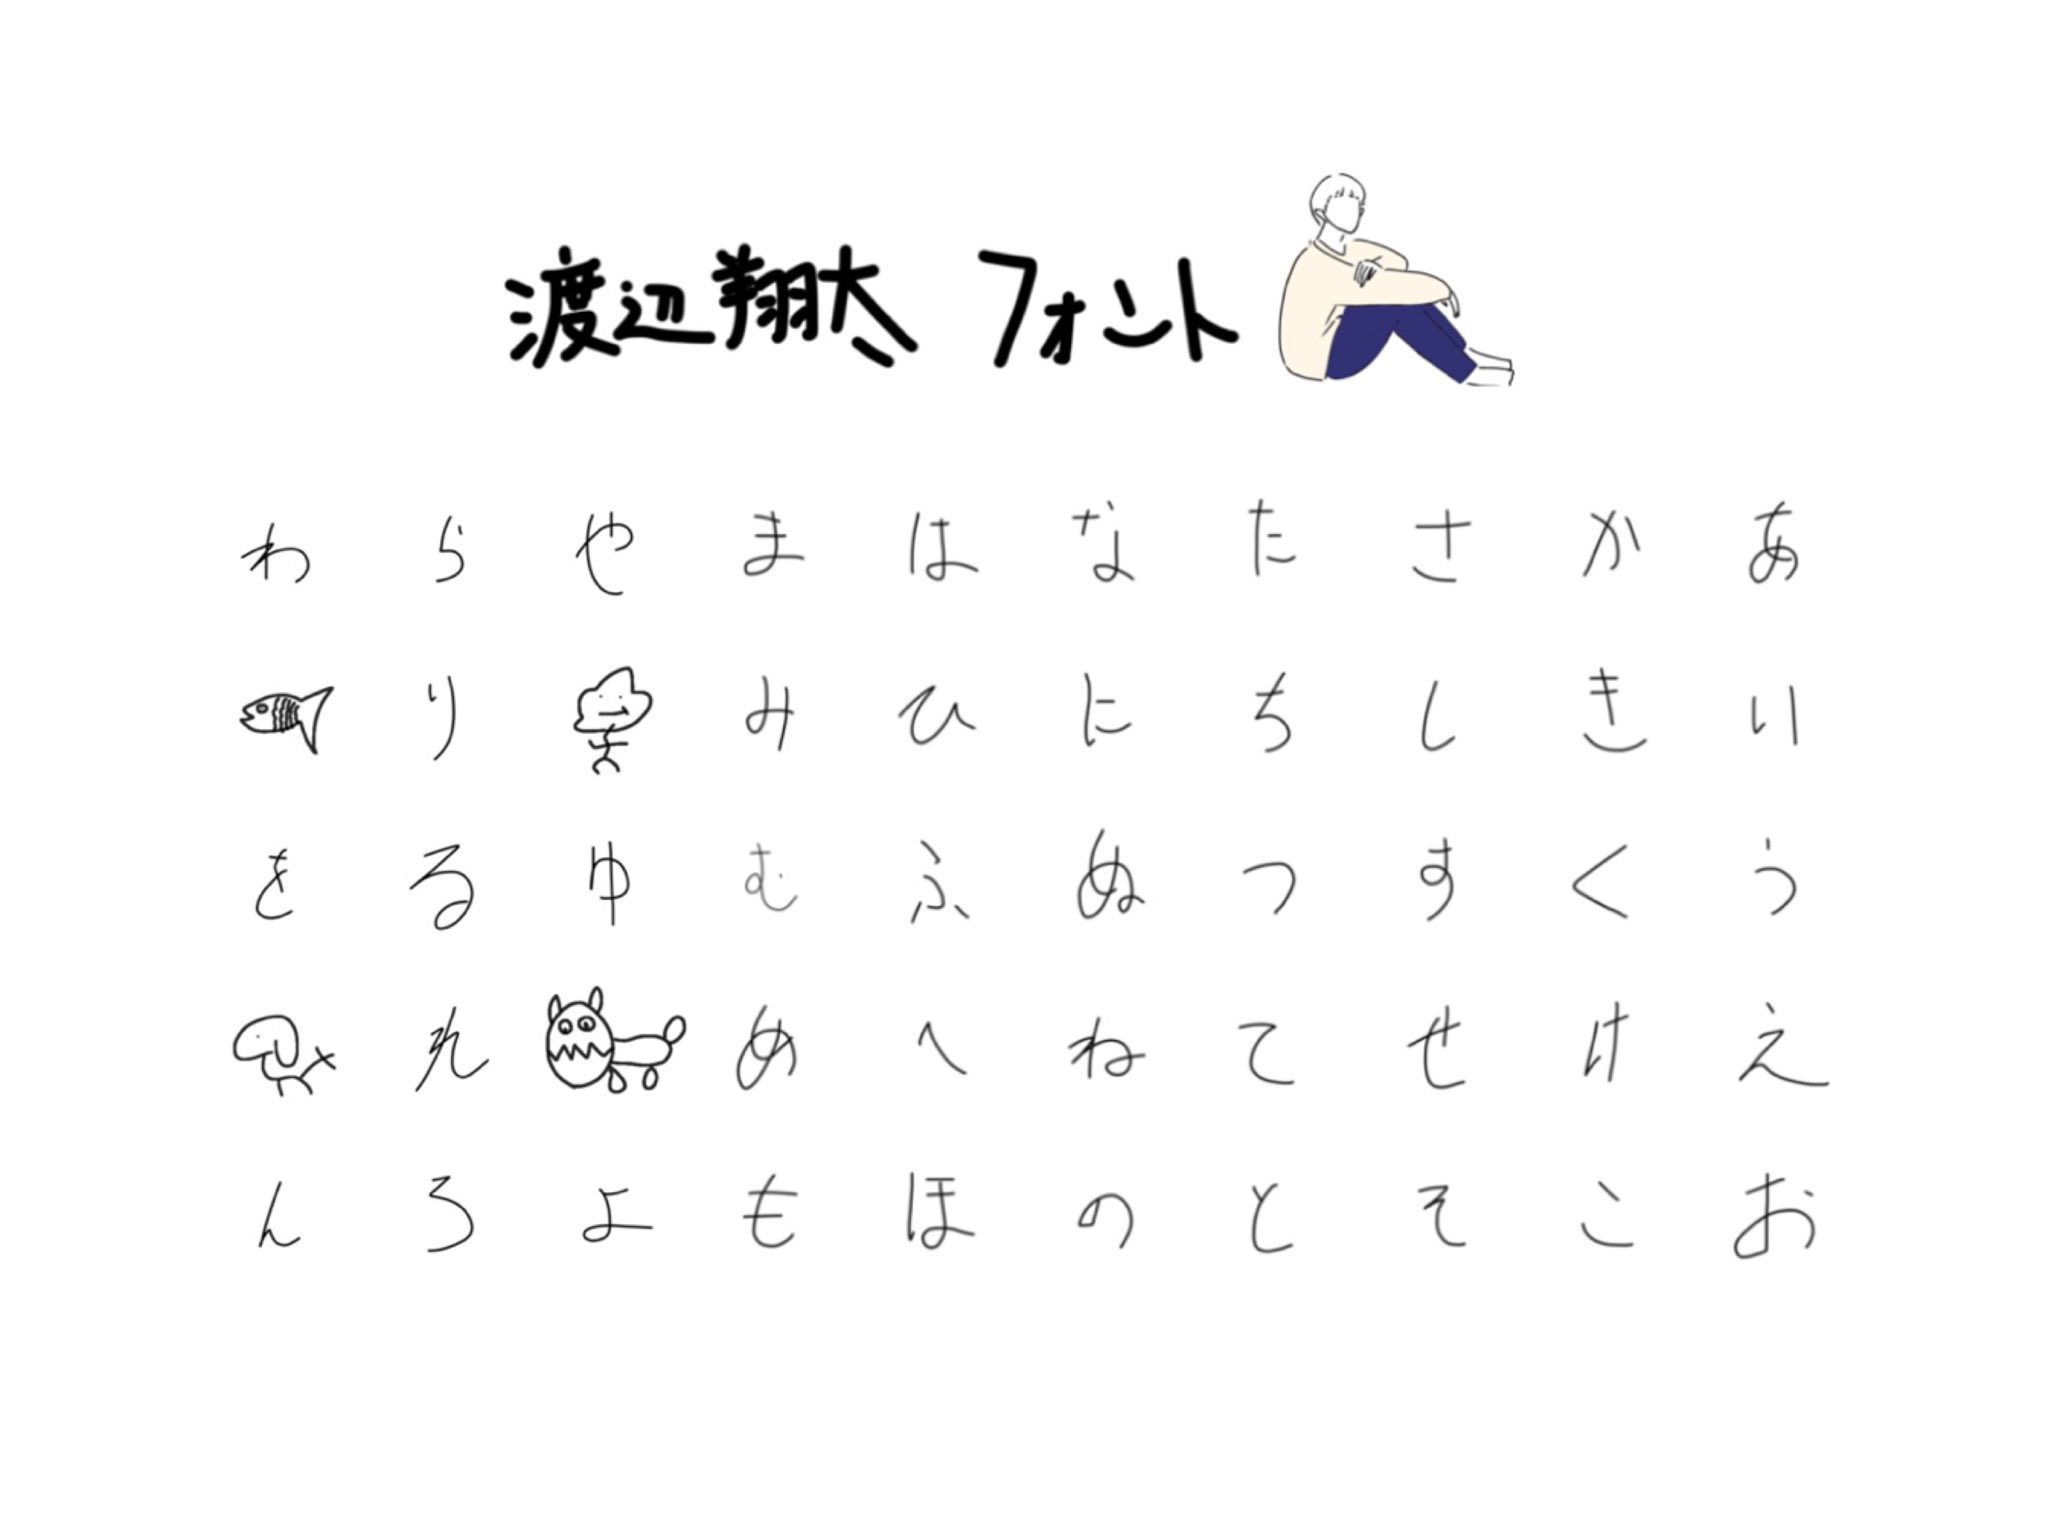 渡辺翔太 フォント
わ ら や ま は な た さ か あ
り み ひ に ち し き い
を る ゆ む ふ ぬ つ す く う
れ め へ ね て せ け え
ん ろ よ も ほ の と そ こ お